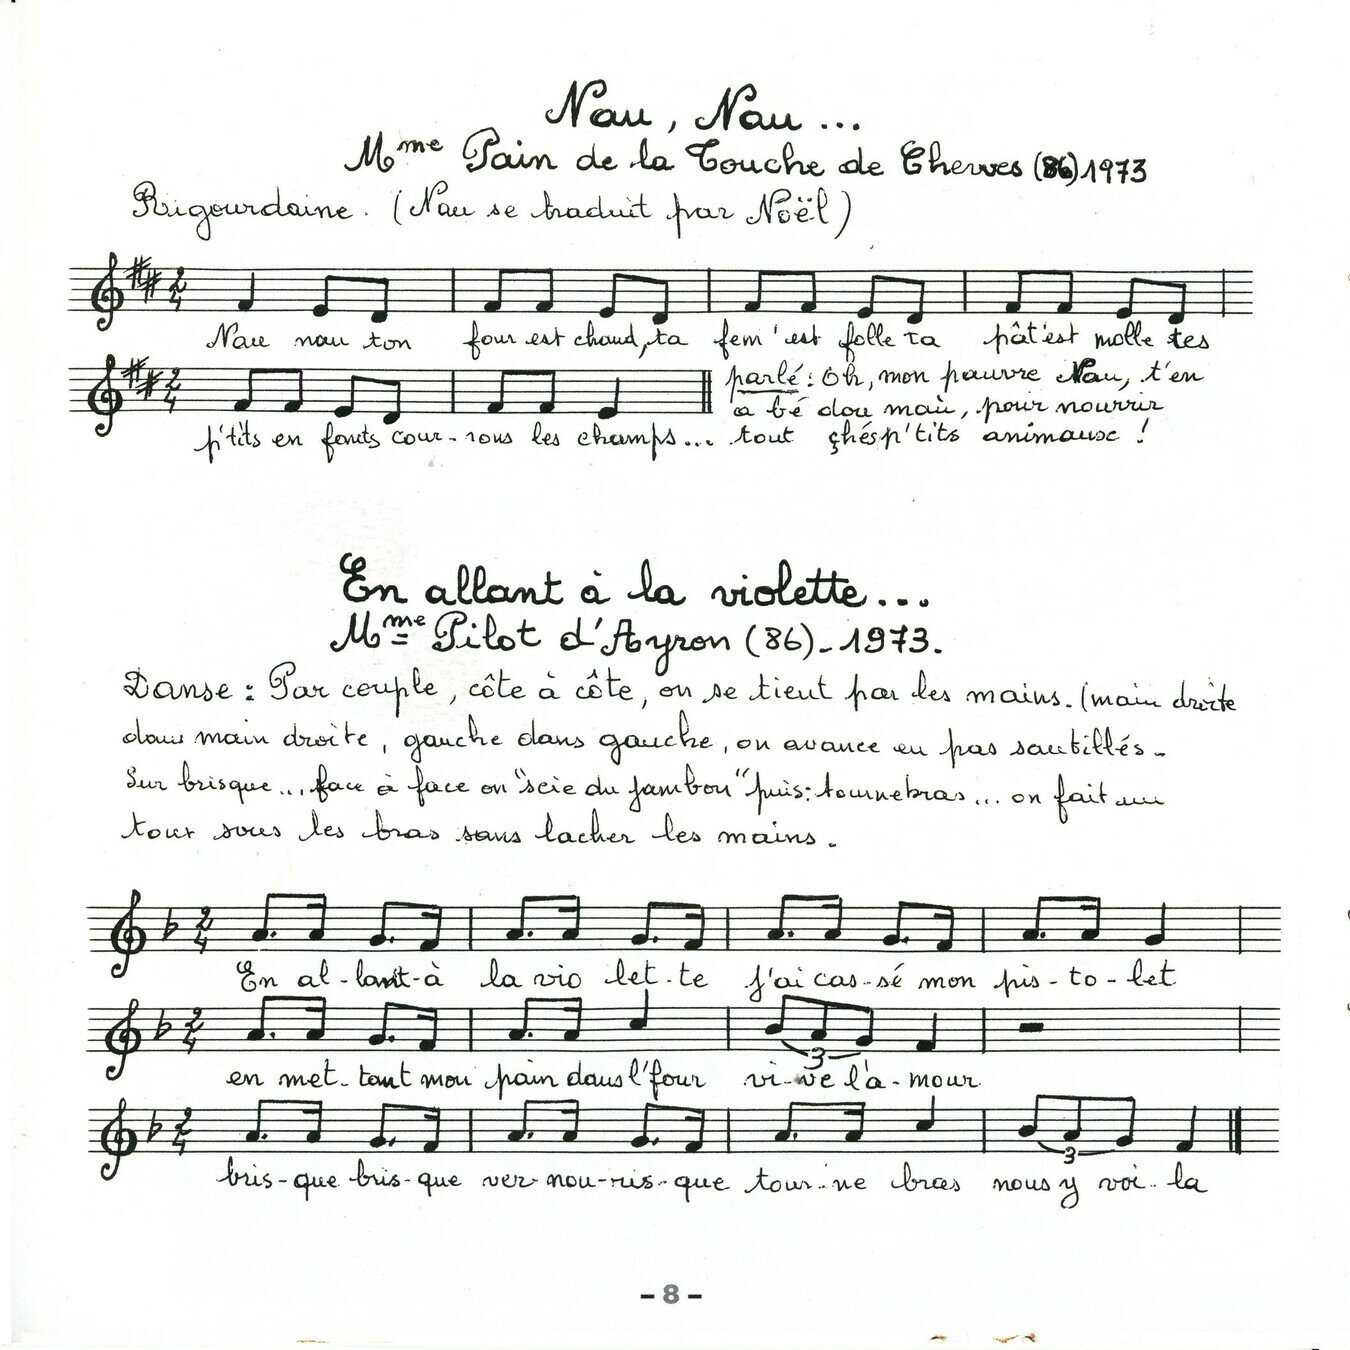 Nau, Nau...
Mme Pain de la Touche de Cherves (86) 1973
Rigourdaine. (Nau se traduit par Noël)
2 4
Nau nau ton four est chaud, ta fem' est folle ta pât'est molle tes
2 4
parlé : Oh, mon pauvre Nau, t'en
a bé dou maù, pour nourrir
p'tits en fonts cour-rous les champs... tout çhés p'tits animaux !
En allant à la violette...
Mme Pilot d'Ayron (86) - 1973.
Danse : Par couple, côte à côte, on se tient par les mains. (main droite
dans main droite, gauche dans gauche, on avance en pas sautillés -
Sur brisque... face à face on "scie du jambon" puis : tournebras... on fait un
tour sous les bras sans lacher les mains.
2 4
En al--lant-à la vio let--te j'ai cas--sé mon pis-to-let
2 4
3
en met-tant mon pain dans l'four vi--ve l'a-mour
2 4
3
bris-que bris-que ver-nou-ris-que tour--ne bras nous y voi--la
- 8 -